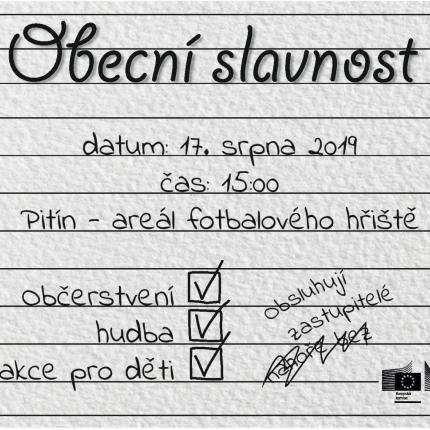 Obecní slavnost
datum: 17. srpna 2019
čas: 15:00
Pitín - areál fotbalového hřiště
občerstvení
hudba
akce pro děti
obsluhují
zastupitelé
nahoře bez